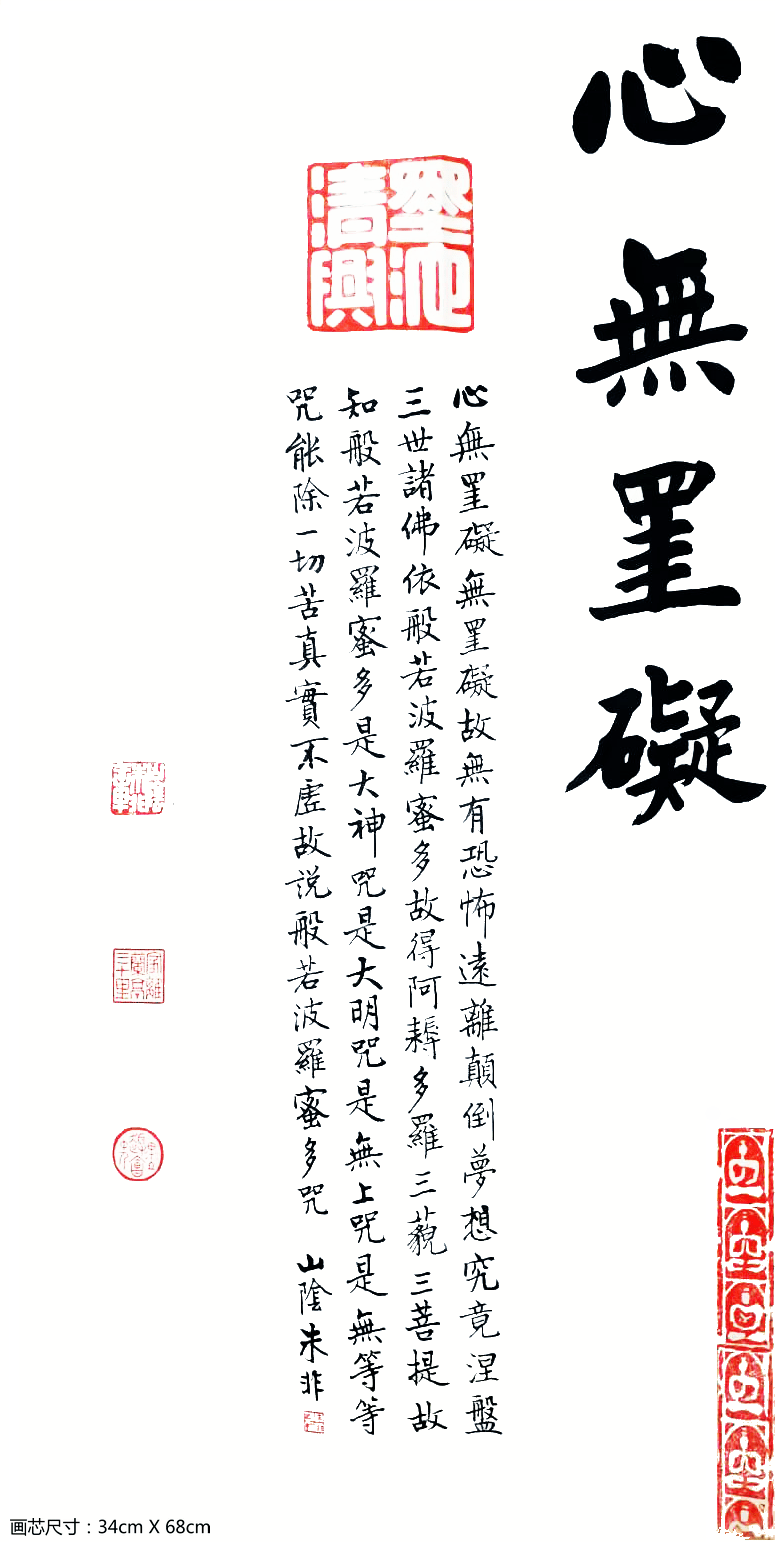 心無罣礙
墨池清興
心無罣礙無罣礙故無有恐怖遠離顛倒夢想究竟涅盤
三世諸佛依般若波羅蜜多故得阿耨多羅三藐三菩提故
知般若波羅蜜多是大神咒是大明咒是無上咒是無等等
咒能除一切苦真實不虛故説般若波羅蜜多咒 山陰朱非
画芯尺寸：34cm X 68cm